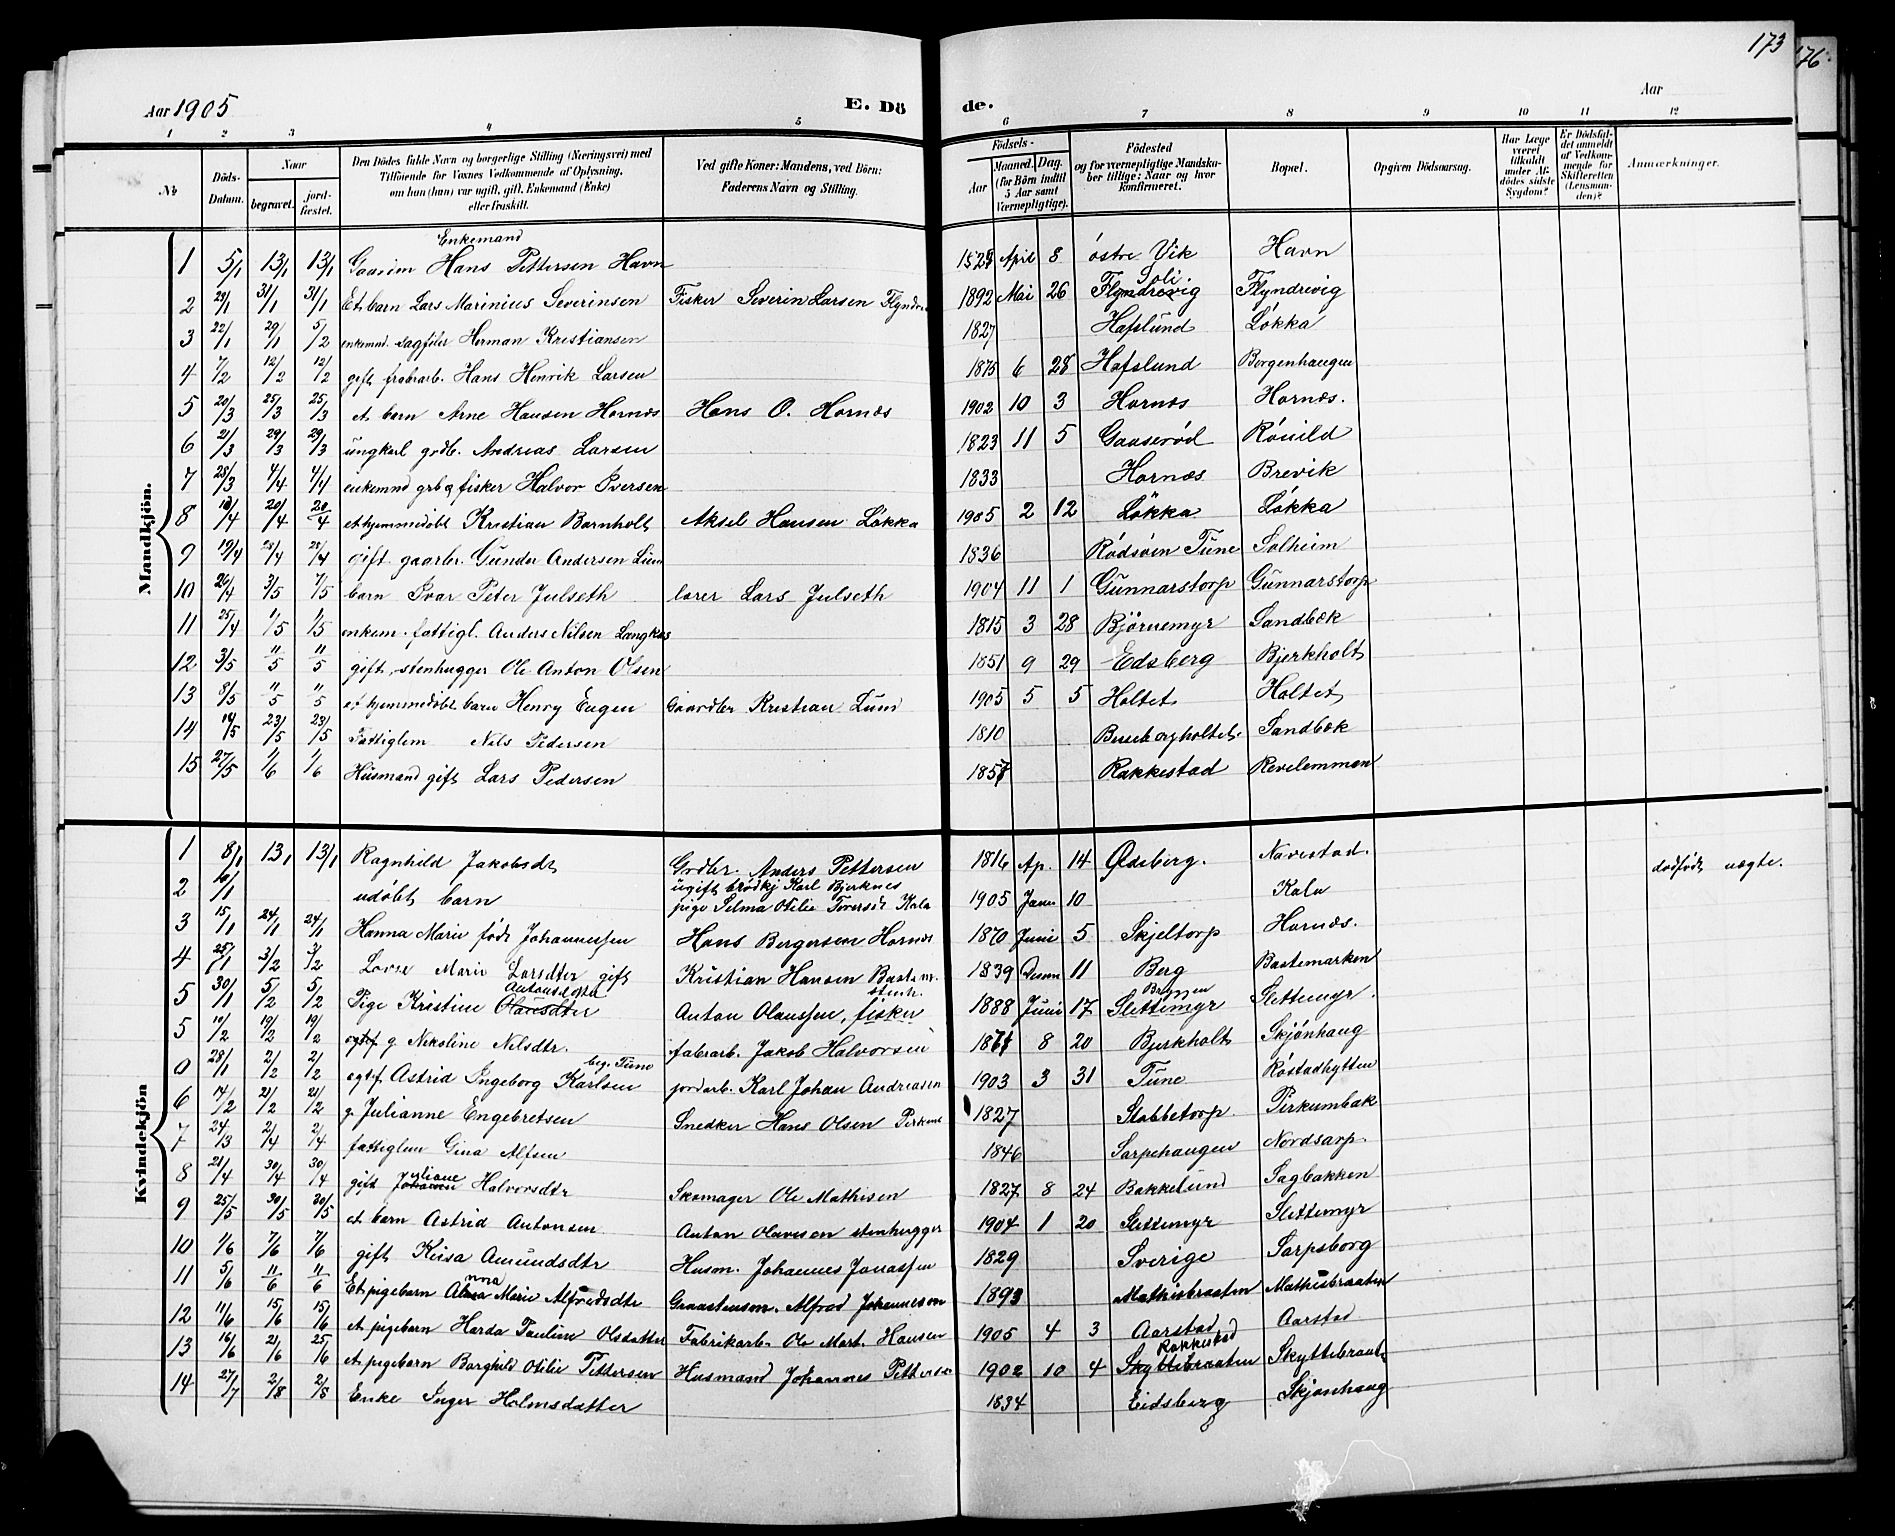 173
176
Aar 1905
E. Dö
de.
Aar
1 2 3 4 5 6 7 8 9 10 11 12
№
Döds-Datum.
Naar
begravet.
jord-fæstet.
Den Dödes fulde Navn og borgerlige Stilling (Næringsvei) med
Tilföiende for Voxnes Vedkommende af Oplysning,
om han (hun) var ugift, gift, Enkemand (Enke)
eller fraskilt.
Ved gifte Koner: Mandens, ved Börn:
Faderens Navn og Stilling.
Födsels-
Aar
Maaned. Dag.
(for Börn indtil
5 Aar samt
Værnepligtige).
Födested
og for værnepligtige Mandska-
ber tillige: Naar og hvor
konfirmeret.
Bopæl.
Opgiven Dödsaarsag.
Har Læge
været
tilkaldt
under Af-
dödes sidste
Sygdom?
Er Dödsfal-
det anmeldt
af Vedkom-
mende for
Skifteretten
(Lensman-
den)?
Anmærkninger.
Mandkjön.
Enkemand
1 5/1 13/1 13/1 Hans Pettersen Havn April 8 östre Vik Havn
Soli
2 29/1 31/1 31/1 Et barn Lars Marinius Severinsen Fisker Severin Larsen Flyndre 1892 Mai 26 Flyndrevig Flyndrevig
3 22/1 29/1 5/2 enkemnd. Herman Kristiansen 1827 Hafslund Løkka
4 7/2 12/2 12/2 gift fabrarb. Hans Henrik Larsen 1875 6 28 Hafslund Borgenhaugen
5 20/3 25/3 25/3 et barn Arne Hansen Hornæs Hans O. Hornæs 1902 10 3 Hornæs Hornæs.
6 21/3 29/3 29/3 ungkarl grdb. Andreas Larsen 1823 11 5 Gaaserød
7 28/3 4/4 4/4 enkemnd grb og fisker Halvor Iversen 1833 Hornæs Brevik
8 18/4 20/4 20/4 et hjemmedøbt Kristian Barnholt Aksel Hansen Løkka 1905 2 12 Løkka Løkka
9 19/4 28/4 28/4 gift gaarbr. Gunder Andersen Lund 1836 Rødsøen Tune Solheim
10 26/4 3/5 7/5 barn Ivar Peter Julseth lærer Lars Julseth 1904 11 1 Gunnarstorp Gunnarstorp
11 25/4 1/5 1/5 enkem. fattigl. Anders Nilsen Langkaas 1815 3 28 Björnemyr Sandbæk
12 3/5 11/5 11/5 gift, stenhugger Ole Anton Olsen 1851 9 29 Edsberg Bjerkholt
13 8/5 11/5 11/5 et hjemmedøbt barn Henry Eugen Gaardbr Kristian Lund 1905 5 5 Holtet Holtet
14 14/5 23/5 23/5 Fattiglem Nils Pedersen 1810 Sandbæk
15 27/5 1/6 1/6 Husmand gift Lars Pedersen Rakkestad Revelemmen
Kvindekjön
1 8/1 13/1 13/1 Ragnhild Jakobsdt Grdbr. Anders Pettersen 1816 Ap. 14 Ødsberg. Navestad.
2 10/1 udøbt barn ugift brødkj Karl Bjerknes 1905 Janu 10 Kala dødfødt uægte.
pige Selma Otilie Kala
3 15/1 24/1 24/1 Hanna Marie født Johannessen Hans Bergersen Hornæs 1870 Juni 5 Skjeltorp Hornæs.
4 25/1 3/2 3/2 Lovise Marie Larsdter gift Kristian Hansen Bastem. 1839 Desem 11 Berg Bastemarken
Antonsdatter stenh.
5 30/1 5/2 5/2 Pige Kristine Olausdtter Anton Olaussen, fisker 1888 Juni 17 Slettemyr Slettemyr.
5 10/2 19/2 19/2 g. Nikoline Nilsdtr. fabrarb. Jakob Halvorsen 8 20 Bjerkholt Skjönhaug
beg. Tune
0 28/1 2/2 2/2 egtf Astrid Ingeborg Karlsen jordarb. Karl Johan Andreasen 1903 3 31 Tune Røstadhytten
6 17/2 21/2 21/2 g. Julianne Engebretsen Snedker Hans Olsen 1827 Stabbetorp. Pirkumbæk
7 24/3 2/4 2/4 fattiglem Gina Alfsen 1846 Sarpehaugen Nordsarp.
8 21/4 30/4 30/4 gift Juliane Halvorsdtr Skomager Ole Mathisen 1827 8 24 Bakkelund Sagbakken
9 25/5 30/5 30/5 et barn Astrid Antonsen Anton Olavesen stenhugger 1904 1 20 Slettemyr Slettemyr
10 1/6 7/6 7/6 gift Kaisa Amundsdtr Husm. Johannes Jonassen 1829 Sverige Sarpsborg
nna
11 5/6 11/6 11/6 Et pigebarn Anna Marie Alfredsdtr Alfred Johannesen 1893 Mathisbraaten Mathisbraaten
12 11/6 15/6 15/6 et pigebarn Harda Pauline Olsdatter Fabrikarb. Ole Mart. Hansen 1905 4 3 Aarstad Aarstad
Rakkestad
13 16/6 21/6 25/6 et pigebarn Borghild Otilie Pettersen Husmand Johannes Pettersen 1902 10 4 Skyttebraaten Skyttebraate
14 27/7 2/8 2/8 Enke Inger Holmsdatter 1834 Eidsberg Skjönhaug